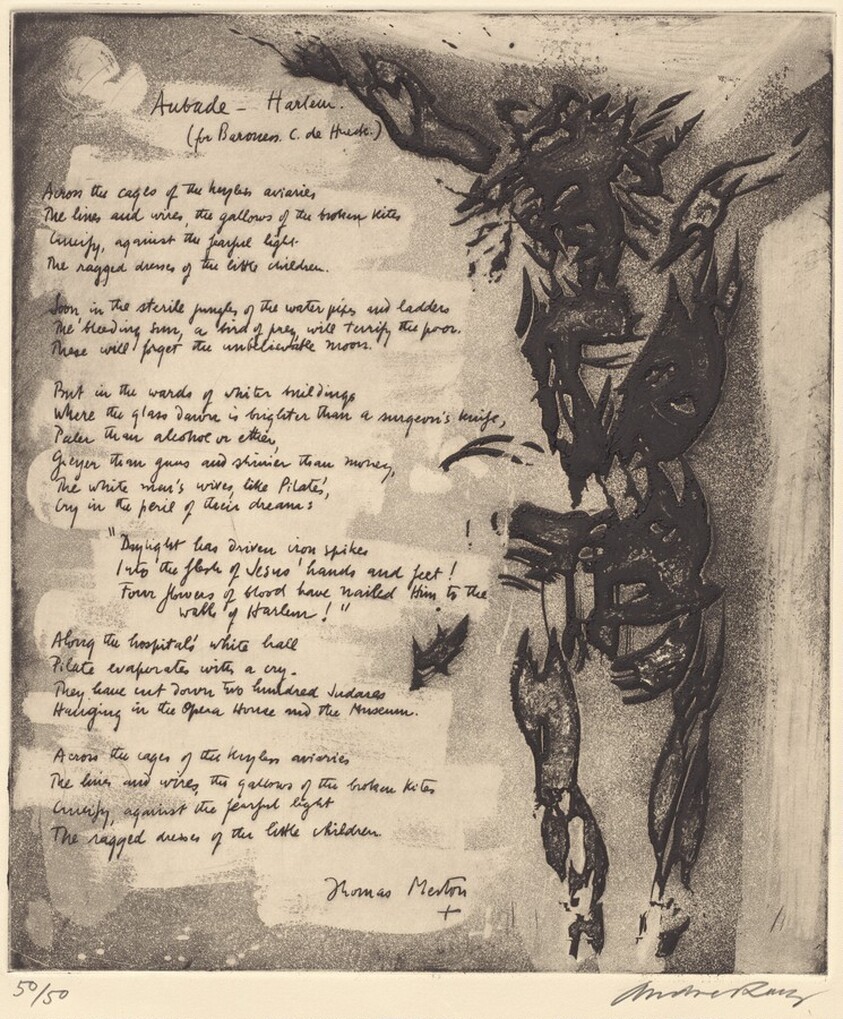 Aubade – Harlem.
(for Baroness C. de Hueck.)
Across the cages of the keyless aviaries
The lines and wires, the gallows of the broken kites
Crucify, against the fearful light
The ragged dresses of the little children.
Soon, in the sterile jungles of the water pipes and ladders
The bleeding sun, a bird of prey, will terrify the poor.
These will forget the unbelievable moon.
But in the wards of whiter buildings
Where the glass dawn is brighter than a surgeon's knife,
Paler than alcohol or ether,
Greyer than guns and shinier than money,
The white men's wives, like Pilate's,
Cry in the peril of their dreams:
"Daylight has driven iron spikes
Into the flesh of Jesus' hands and feet!
Four flowers of blood have nailed Him to the
walls of Harlem!"
Along the hospitals' white hall
Pilate evaporates with a cry.
They have cut down two hundred Judases
Hanging in the Opera House and the Museum.
Across the cages of the keyless aviaries
The lines and wires, the gallows of the broken kites
Crucify, against the fearful light
The ragged dresses of the little children.
Thomas Merton
+
50/50
Andre Racz